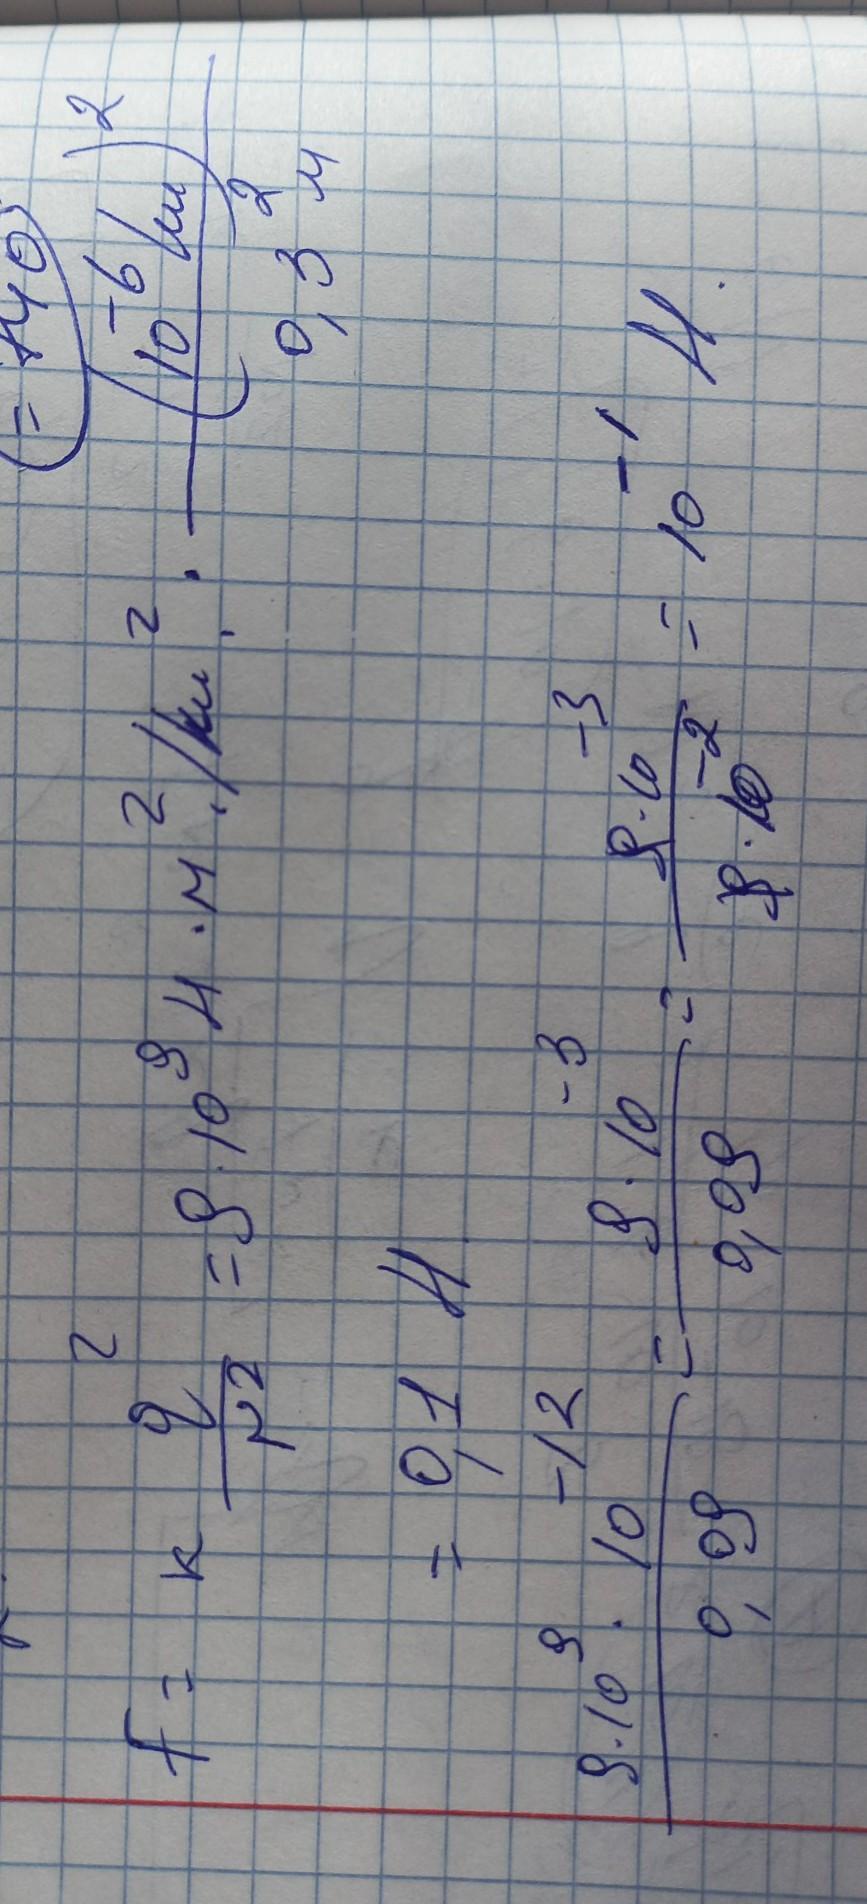 = 940
F = k q² / r² = 9·10⁹ Н·м²/Кл² · (10⁻⁶ Кл)² / (0,3 м)²
= 0,1 Н
9·10⁹ · 10⁻¹² / 0,09 = 9·10⁻³ / 0,09 = 9·10⁻³ / 9·10⁻² = 10⁻¹ Н.